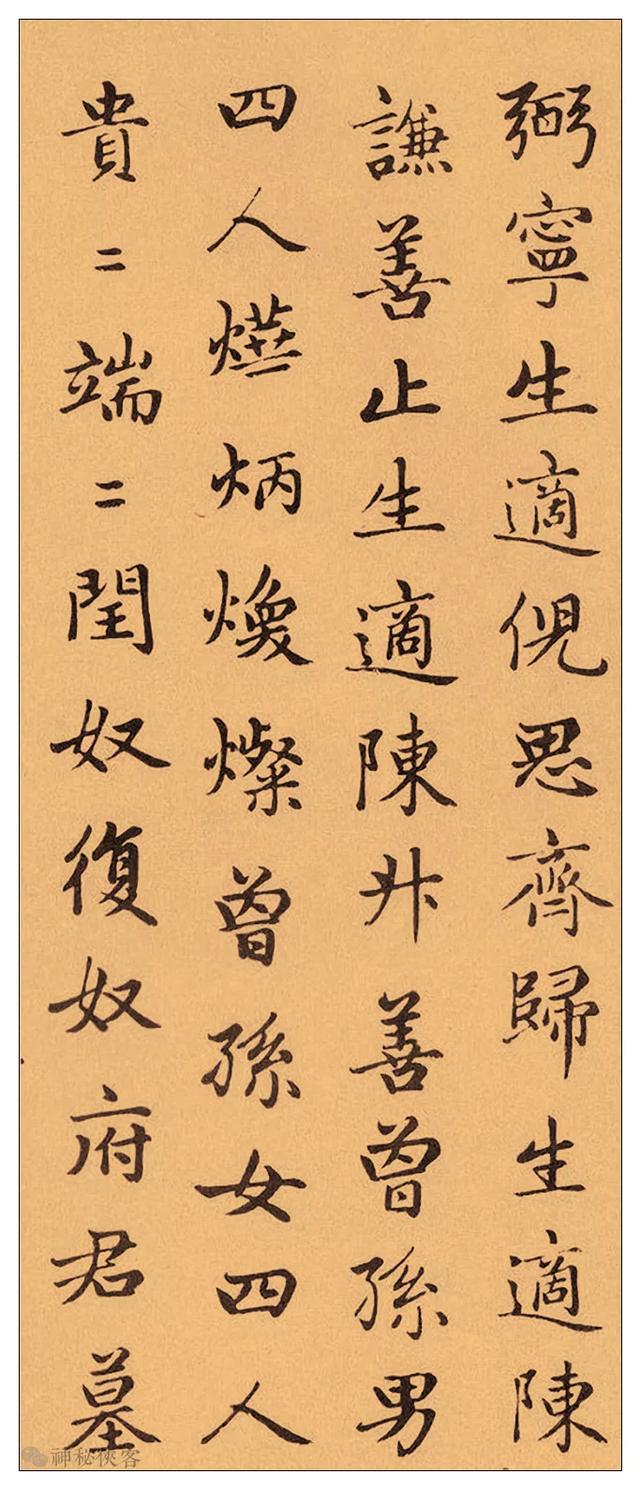 弼寧生適倪思齊歸生適陳
謙善止生適陳廾善曾孫男
四人爗炳煥燦曾孫女四人
貴二端二閏奴復奴府君墓
神秘俠客